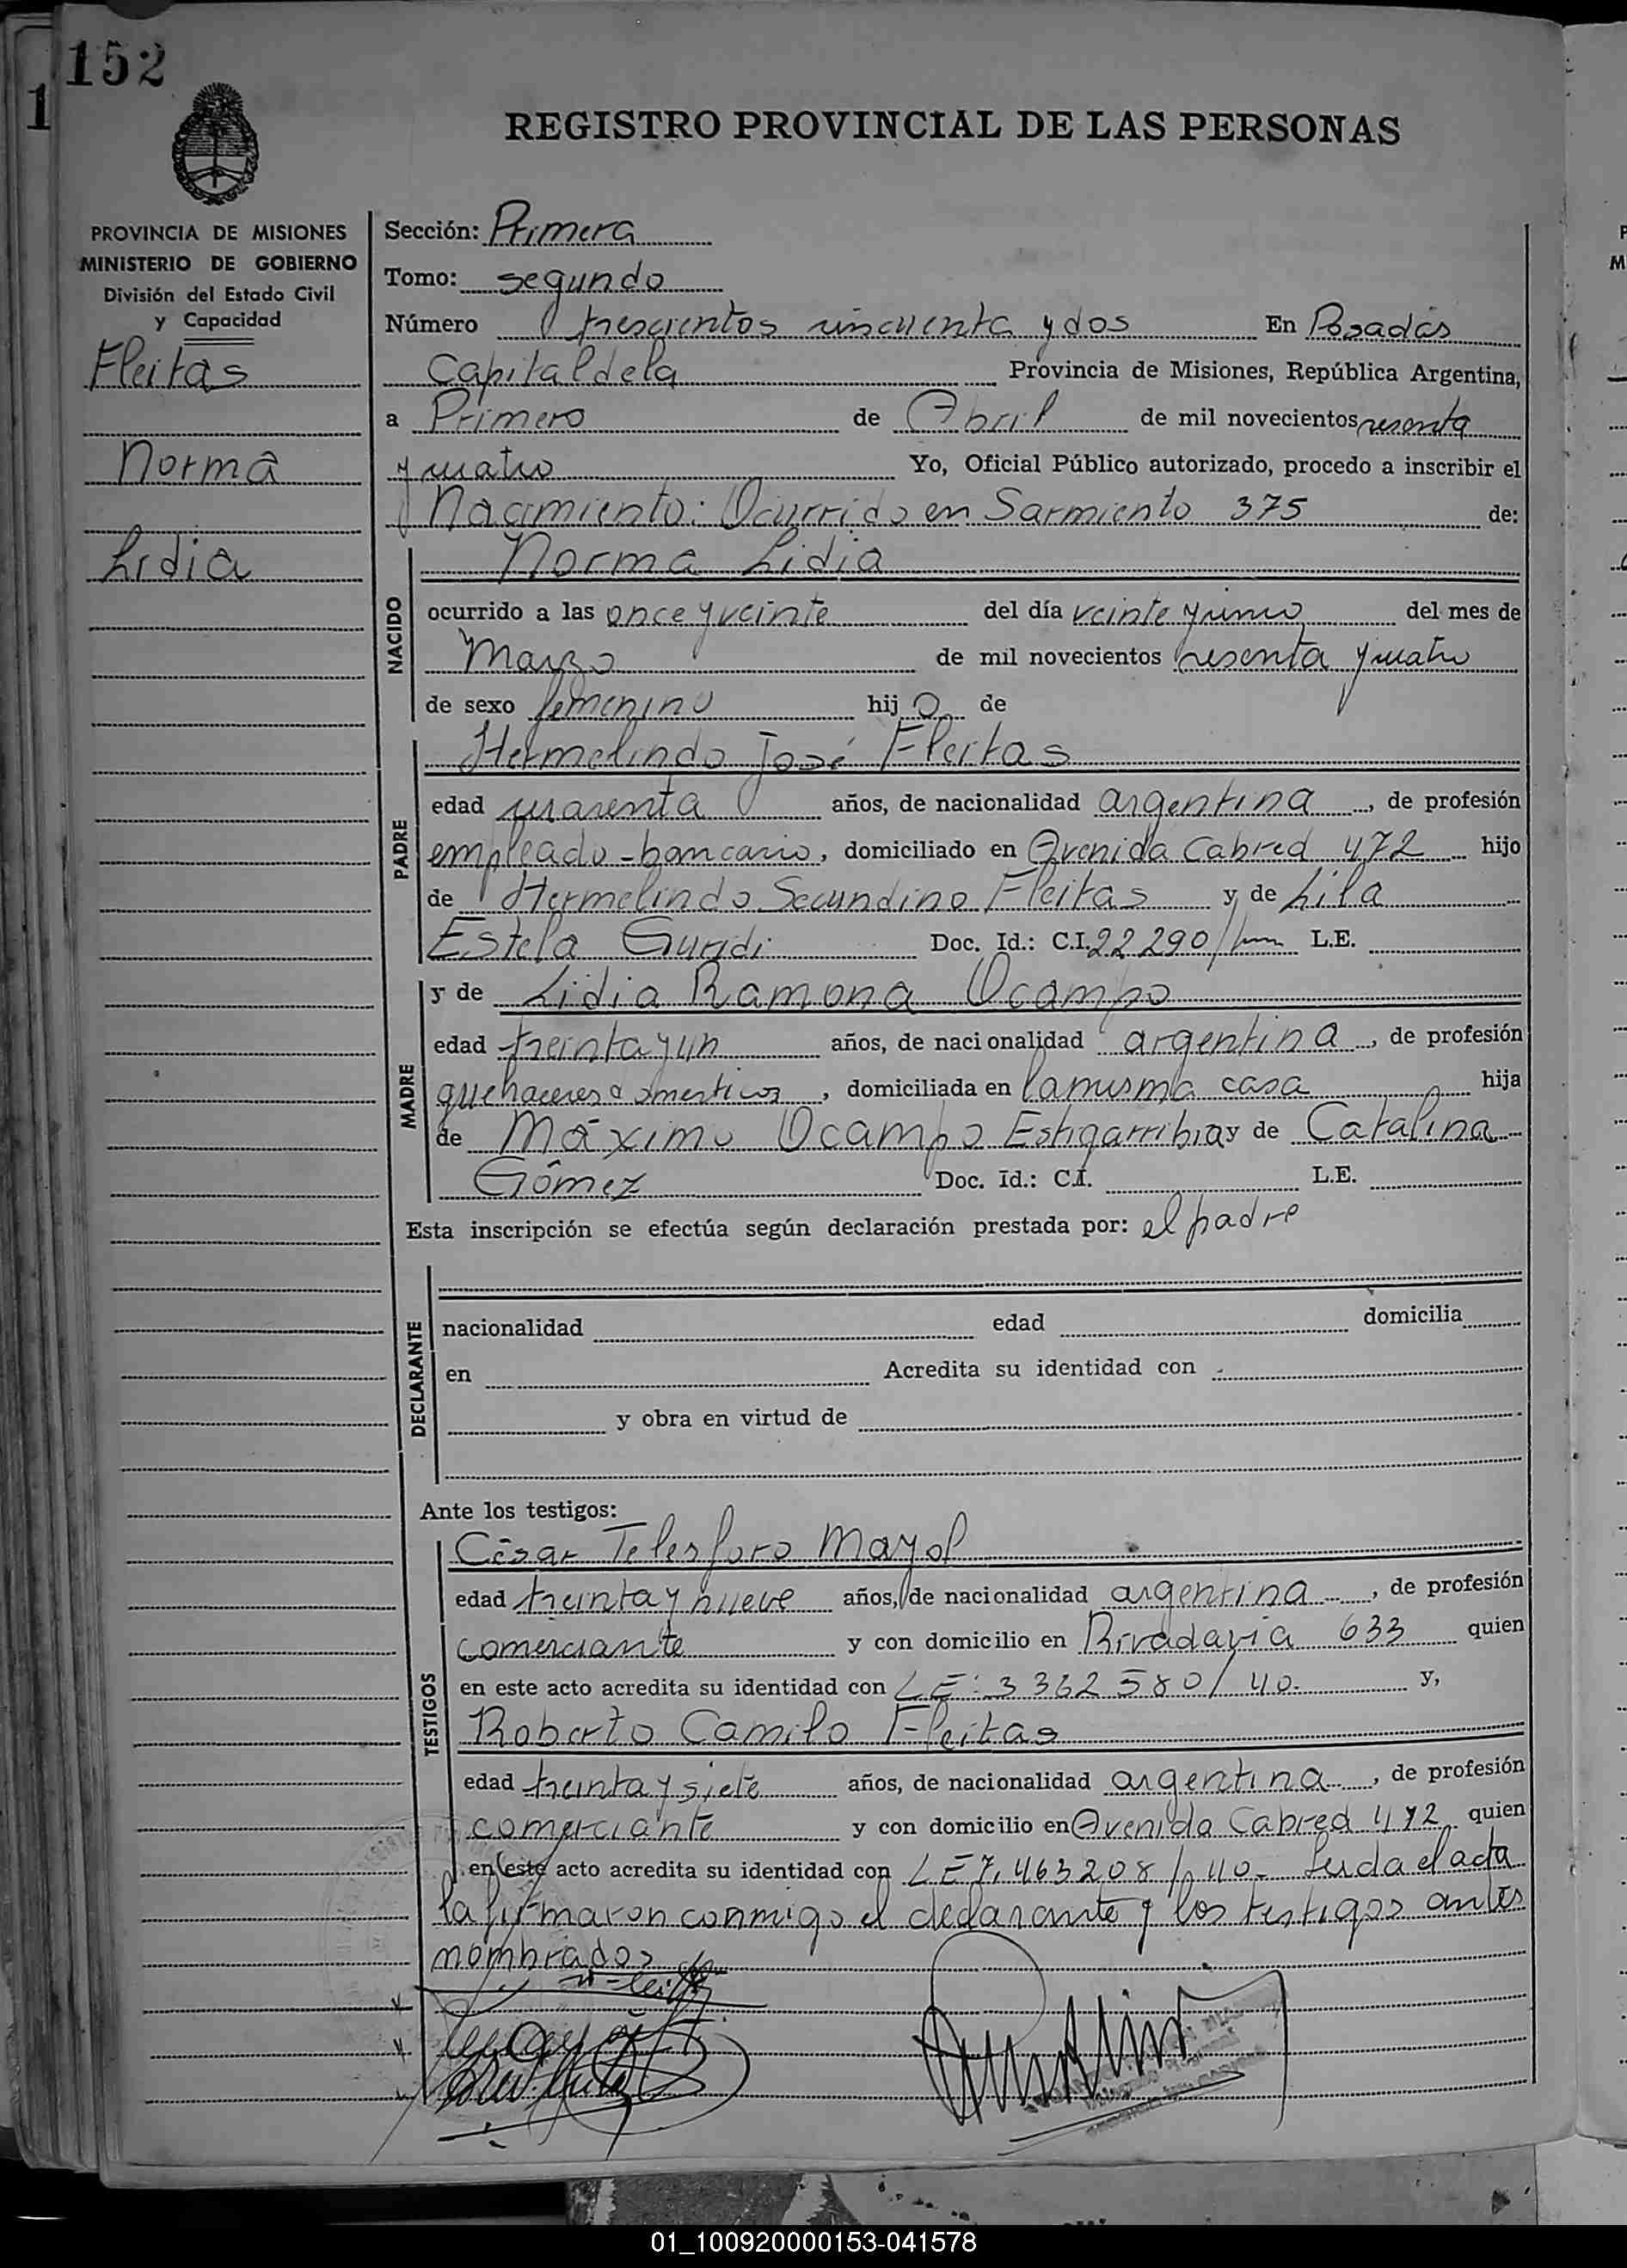 152
1
REGISTRO PROVINCIAL DE LAS PERSONAS
PROVINCIA DE MISIONES
MINISTERIO DE GOBIERNO
División del Estado Civil
y Capacidad
Fleitas
Norma
Lidia
Sección: Primera
Tomo: segundo
Número trescientos cincuenta y dos En Posadas
Capital de la Provincia de Misiones, República Argentina,
a Primero de Abril de mil novecientos sesenta
y cuatro Yo, Oficial Público autorizado, procedo a inscribir el
Nacimiento: Ocurrido en Sarmiento 375 de:
NACIDO
Norma Lidia
ocurrido a las once y veinte del día veinte y cinco del mes de
Marzo de mil novecientos sesenta y cuatro
de sexo femenino hij o de
PADRE
Hermelindo José Fleitas
edad cuarenta años, de nacionalidad argentina, de profesión
empleado-bancario, domiciliado en Avenida Cabred 472 hijo
de Hermelindo Secundino Fleitas y de Lila
Estela Guridi Doc. Id.: C.I. 22290/ L.E.
MADRE
y de Lidia Ramona Ocampo
edad treinta y un años, de nacionalidad argentina, de profesión
quehaceres domesticos, domiciliada en la misma casa hija
de Máximo Ocampo Estigarribia y de Catalina
Gómez Doc. Id.: C.I. L.E.
Esta inscripción se efectúa según declaración prestada por: el padre
DECLARANTE
nacionalidad edad domicilia
en Acredita su identidad con
y obra en virtud de
Ante los testigos:
TESTIGOS
César Telesforo Mayol
edad treinta y nueve años, de nacionalidad argentina, de profesión
comerciante y con domicilio en Rivadavia 633 quien
en este acto acredita su identidad con LE: 3362580/40. y,
Roberto Camilo Fleitas
edad treinta y siete años, de nacionalidad argentina, de profesión
comerciante y con domicilio en Avenida Cabred 472 quien
en este acto acredita su identidad con LE 7,463208/40- Leida el acta
la firmaron conmigo el declarante y los testigos antes
nombrados
01_100920000153-041578